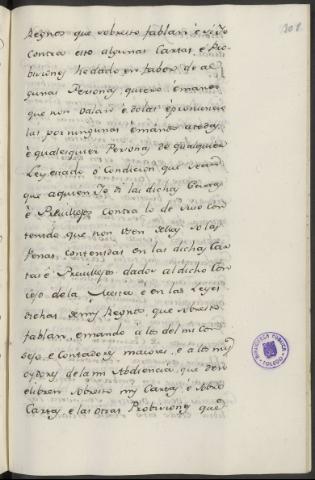 301
Regnos que sobresto fablan: è si Yo
contra esto algunas Cartas è Pro
visiones he dado en fabor de al
gunas Personas, quiero è mando
que non valan è dolas è pronuncio
las por ningunas è mando a todas
è qualesquier Personas de qualquier
Ley estado ò Condicion que sean
que aquien Yo di las dichas Cartas
è Previllejos contra lo de suso con
tenido que non usen dellas so las
Penas contenidas en las dichas Car
tas è Previllejos dados al dicho Con
cejo de la Mesta è en las Leyes
dichas de mis Regnos, que sobresto
fablan, è mando à los del mi Con
sejo, è Contadores maiores, è a los mis
oydores de la mi Abdiencia, que den è
libren sobresto mis Cartas, è sobre
Cartas, è las otras Probisiones que
BIBLIOTECA PUBLICA
TOLEDO